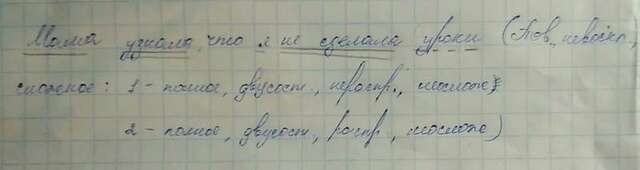 Мама узнала, что я не сделала уроки (Пов., невоскл.,
сложное: 1 - полное, двусост., нераспр.,
2 - полное, двусост., распр.,